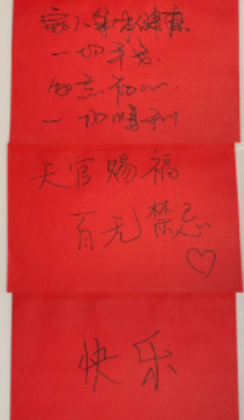 家人身体健康
一切平安.
勿忘初心.
一切顺利
天官赐福
百无禁忌
快乐